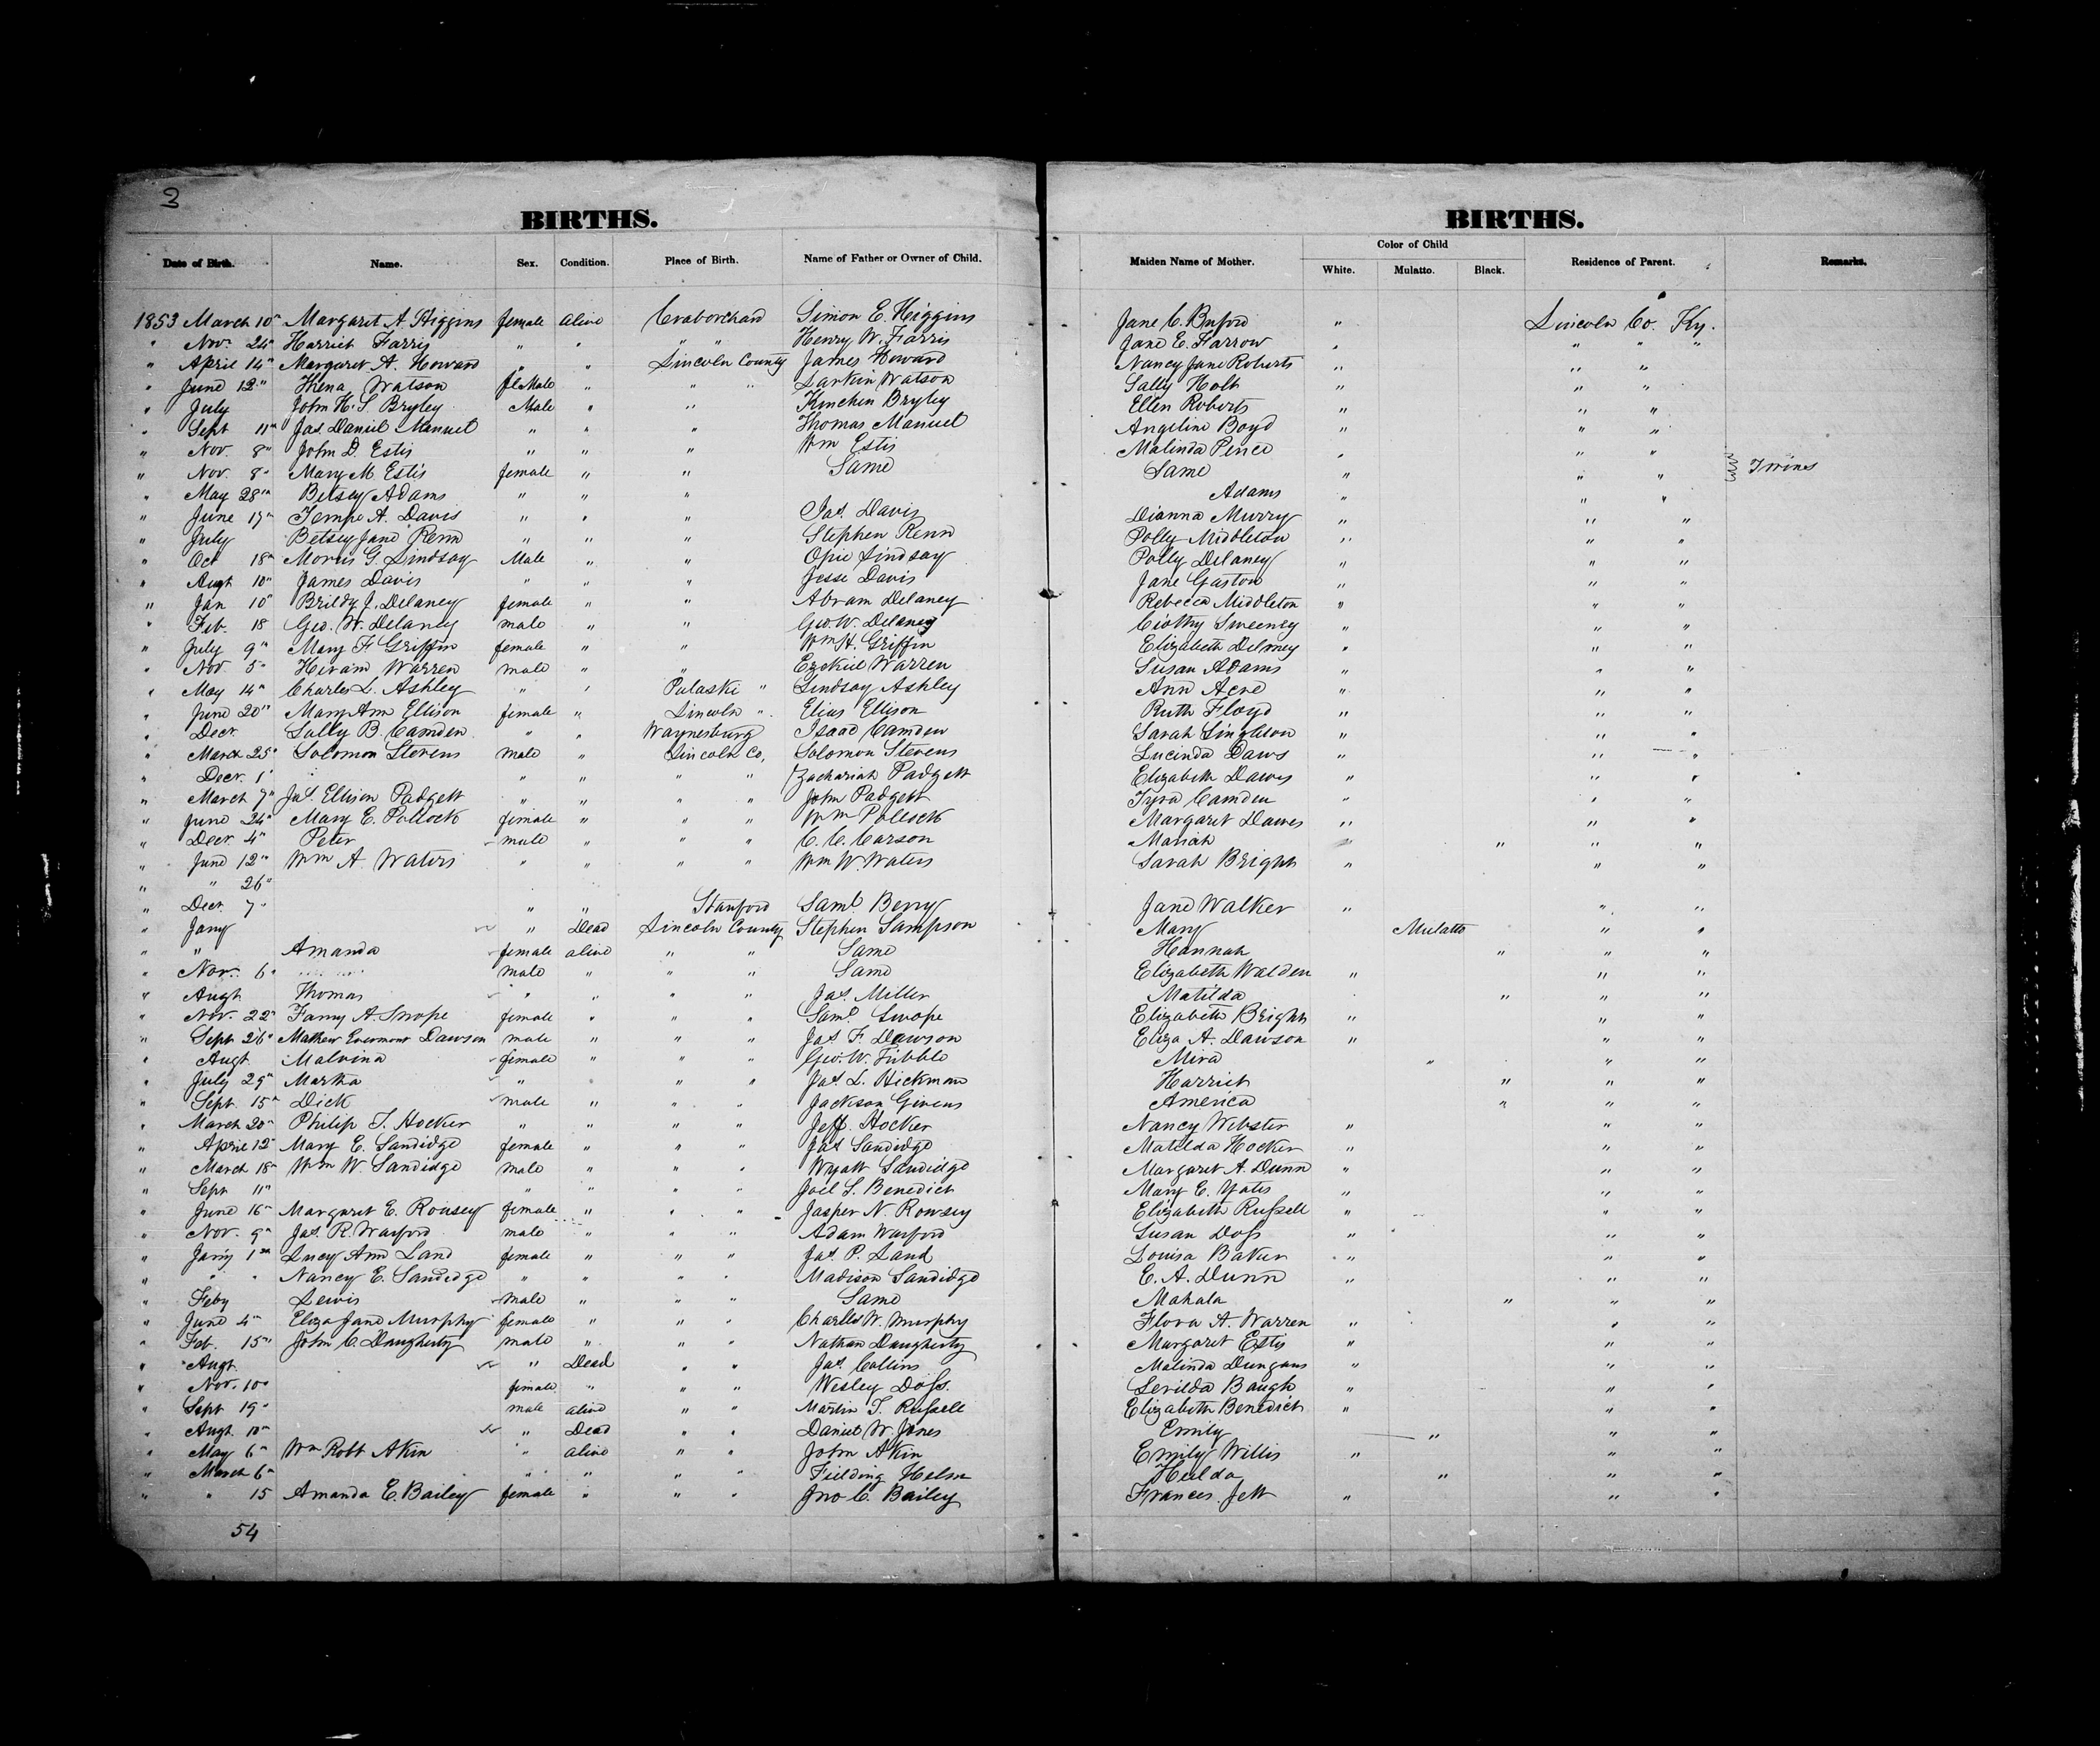 3
BIRTHS. BIRTHS.
Color of Child
Date of Birth. Name. Sex. Condition. Place of Birth. Name of Father or Owner of Child. Maiden Name of Mother. White. Mulatto. Black. Residence of Parent. Remarks.
1853 March 10" Margaret A. Higgins female alive Craborchard Simon E. Higgins Jane C. Buford " Lincoln Co. Ky.
" Nov. 24" Harriet Farris " " " " Henry W. Farris Jane E. Farrow " " " "
" April 14" Margaret A. Howard " " Lincoln County James Howard Nancy Jane Roberts " " "
" June 12" Watson feMale " " " Larkin Watson Sally Holt " " "
" July John H. S. Bryley Male " " Kinchen Bryley Ellen Roberts " " "
" Sept 11" Jas Daniel Manuel " " " Thomas Manuel Angeline Boyd " " "
" Nov. 8" John D. Estis " " " Wm Estis Malinda Pence " " "
" Nov. 8" Mary M. Estis female " " Same Same " " " Twins
" May 28" Betsey Adams " " " Adams " " "
" June 17" Tempe A. Davis " " " Jas. Davis Dianna Murry " " "
" July Betsey Jane Renn " " " Stephen Renn Polly Middleton " " "
" Oct 18" Morris G. Lindsay Male " " Opie Lindsay Polly Delaney " " "
" Augt 10" James Davis " " " Jesse Davis Jane Gaston " " "
" Jan 10" Brildy J. Delaney female " " Abram Delaney Rebecca Middleton " " "
" Feb. 18 Geo. W. Delaney male " " Geo. W. Delaney Sweeney " " "
" July 9" Mary F Griffin female " " Wm H. Griffin Elizabeth Delmey " " "
" Nov. 5" Hiram Warren male " " Ezekiel Warren Susan Adams " " "
" May 14" Charles L. Ashley " " Pulaski " Lindsay Ashley Ann Acre " " "
" June 20" Mary Ann Ellison female " Lincoln " Elias Ellison Ruth Floyd " " "
" Decr. Sally B. Camden " " Waynesburg Isaac Camden Sarah Singleton " " "
" March 25" Solomon Stevens male " Lincoln Co. Solomon Stevens Lucinda Daws " " "
" Decr. 1" " " " " Zachariah Padgett Elizabeth Dawes " " "
" March 7" Jas. Ellison Padgett " " " " John Padgett Tyra Camden " " "
" June 24" Mary E. Pollock female " " " Wm Pollock Margaret Dawes " " "
" Decr 4" Peter male " " " C. C. Carson Mariah " " "
" June 12" Wm A Waters " " " " Wm W. Waters Sarah Bright " " "
" " 26"
" Decr. 7" " " Stanford Saml. Berry Jane Walker " " "
" Jany " Dead Lincoln County Stephen Sampson Mary Mulatto " "
" " Amanda female alive " " Same Hannah " " "
" Nov. 6" male " " " Same Elizabeth Walden " " "
" Augt Thomas " " " " Jas. Miller Matilda " " "
" Nov. 22" Fanny A. Swope female " " " Saml. Swope Elizabeth Bright " " "
" Sept 26" Mathew Dawson male " " " Jas F Dawson Eliza A. Dawson " " "
" Augt. Malvina female " " " Geo. W. Tribble Mira " " "
" July 29" Martha " " " " Jas. L. Hickman Harriet " " "
" Sept. 15" Dick male " " " Jackson Givens America " " "
" March 20" Philip T. Hocker " " " " Jeff. Hocker Nancy Webster " " "
" April 12" Mary E. Sandidge female " " " Jas Sandidge Matilda Hocker " " "
" March 18" Wm W. Sandidge male " " " Wyatt Sandidge Margaret A. Dunn " " "
" Sept 11" " " " " Joel S. Benedict Mary E. Yates " " "
" June 16" Margaret E. Rousey female " " " Jasper N. Rowsey Elizabeth Russell " " "
" Nov. 9" Jas. R. Warford male " " " Adam Warford Susan Doss " " "
" Jany 1st Lucy Ann Land female " " " Jas P. Land Louisa Baker " " "
" " " Nancy E. Sandidge " " " " Madison Sandidge E. A. Dunn " " "
" Feby Lewis male " " " Same Mahala " " "
" June 4" Eliza Jane Murphy female " " " Charles W. Murphy Flora A. Warren " " "
" Feb. 15" John C. Daugherty male " " " Nathan Daugherty Margaret Estis " " "
" Augt. " Dead " " Jas. Collins Malinda Dungans " " "
" Nov. 10" female " " " Wesley Doss. Serilda Baugh " " "
" Sept 19" male alive " " Martin T. Russell Elizabeth Benedict " " "
" Augt. 10" " Dead " " Daniel W. Jones Emily " " "
" May 6" Wm Robt Akin " alive " " John Akin Emily Willis " " "
" March 6" " " " " Fielding Helm Hulda " " "
" " 15 Amanda E. Bailey female " " " Jno C. Bailey Frances Jett " " "
54